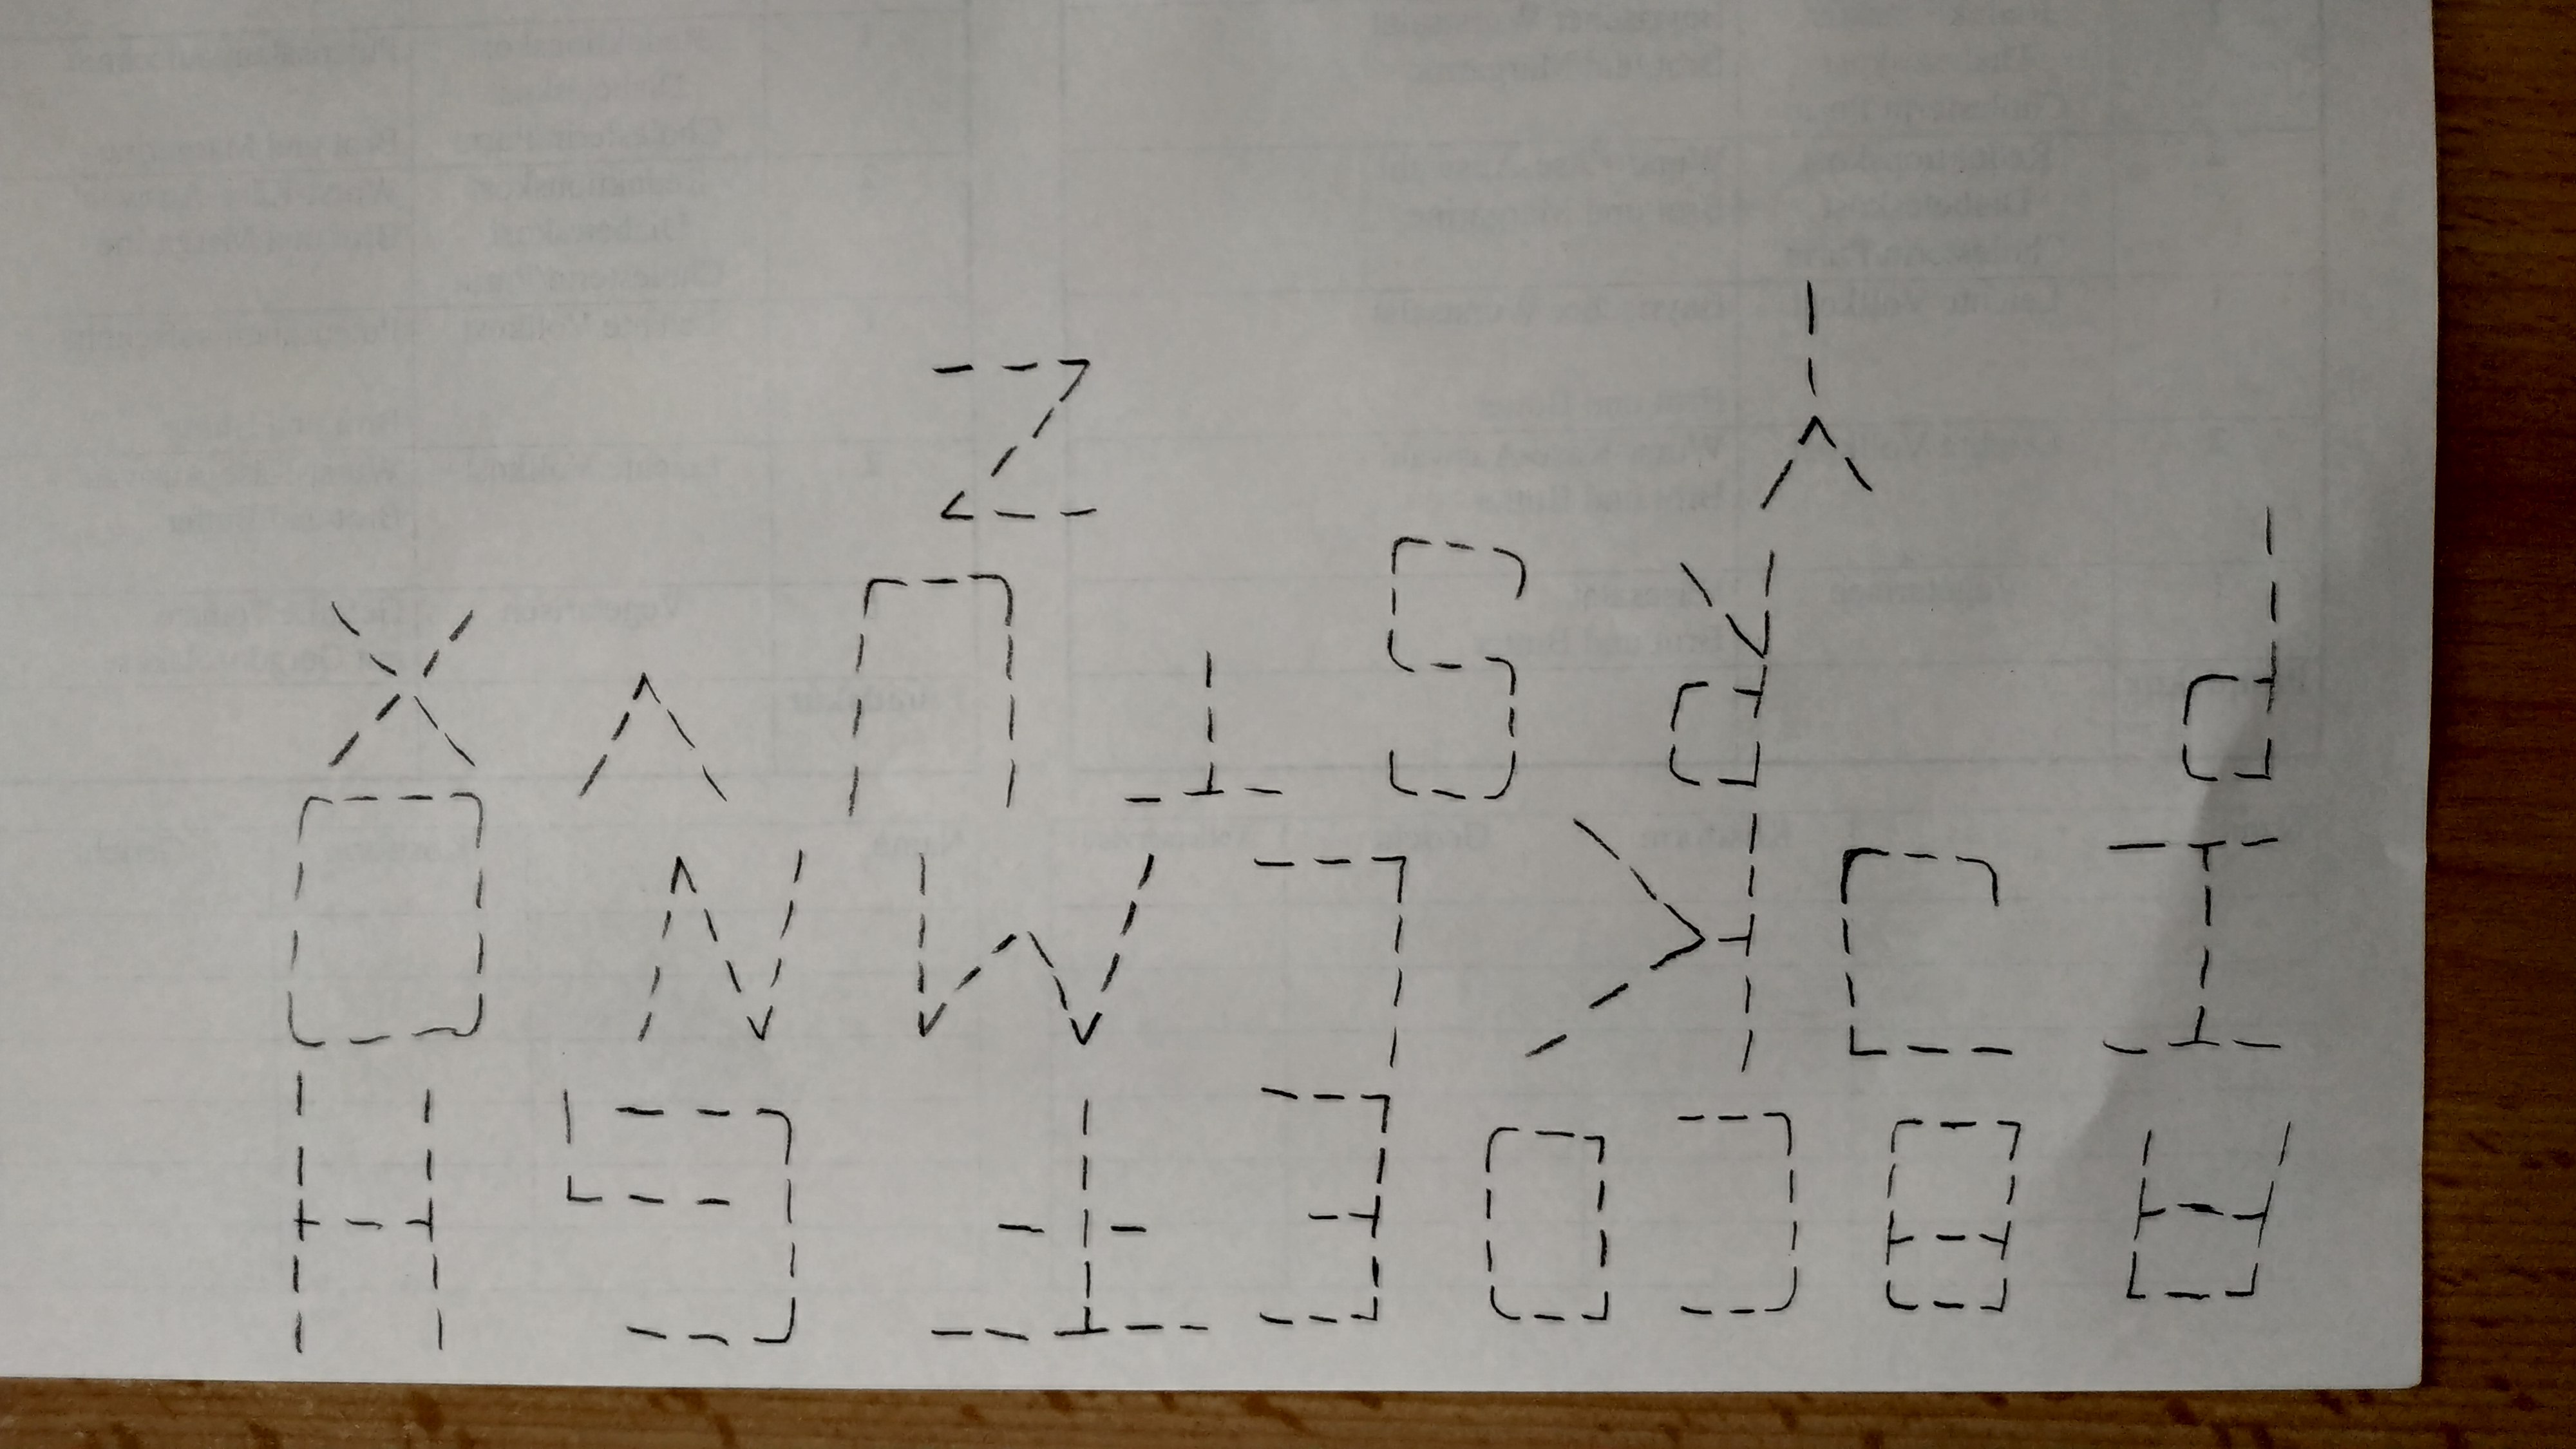 A B C D E F G H
I J K L M N O
P R S T U V X
Y Z